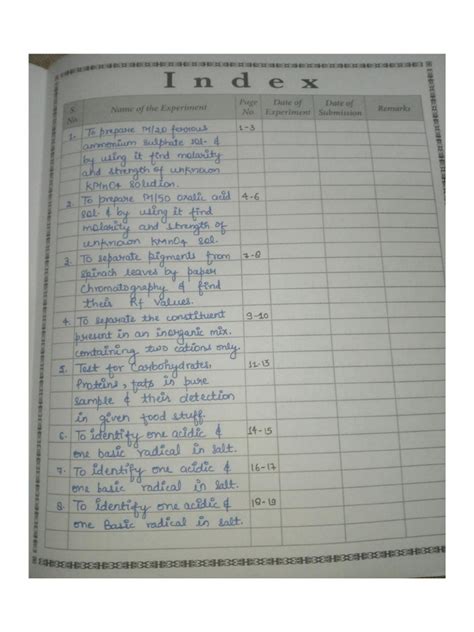 Index
S. No. Name of the Experiment Page No. Date of Experiment Date of Submission Remarks
1. To prepare M/20 ferrous 1-3
ammonium sulphate sol. &
by using it find molarity
and strength of unknown
KMnO4 solution.
2. To prepare M/50 oxalic acid 4-6
sol. & by using it find
molarity and strength of
unknown KMnO4 sol.
3. To separate pigments from 7-8
spinach leaves by paper
Chromatography & find
their Rf values.
4. To separate the constituent 9-10
present in an inorganic mix.
containing two cations only.
5. Test for Carbohydrates, 11-13
Proteins, fats in pure
sample & their detection
in given food stuff.
6. To identify one acidic & 14-15
one basic radical in salt.
7. To identify one acidic & 16-17
one basic radical in salt.
8. To identify one acidic & 18-19
one Basic radical in salt.